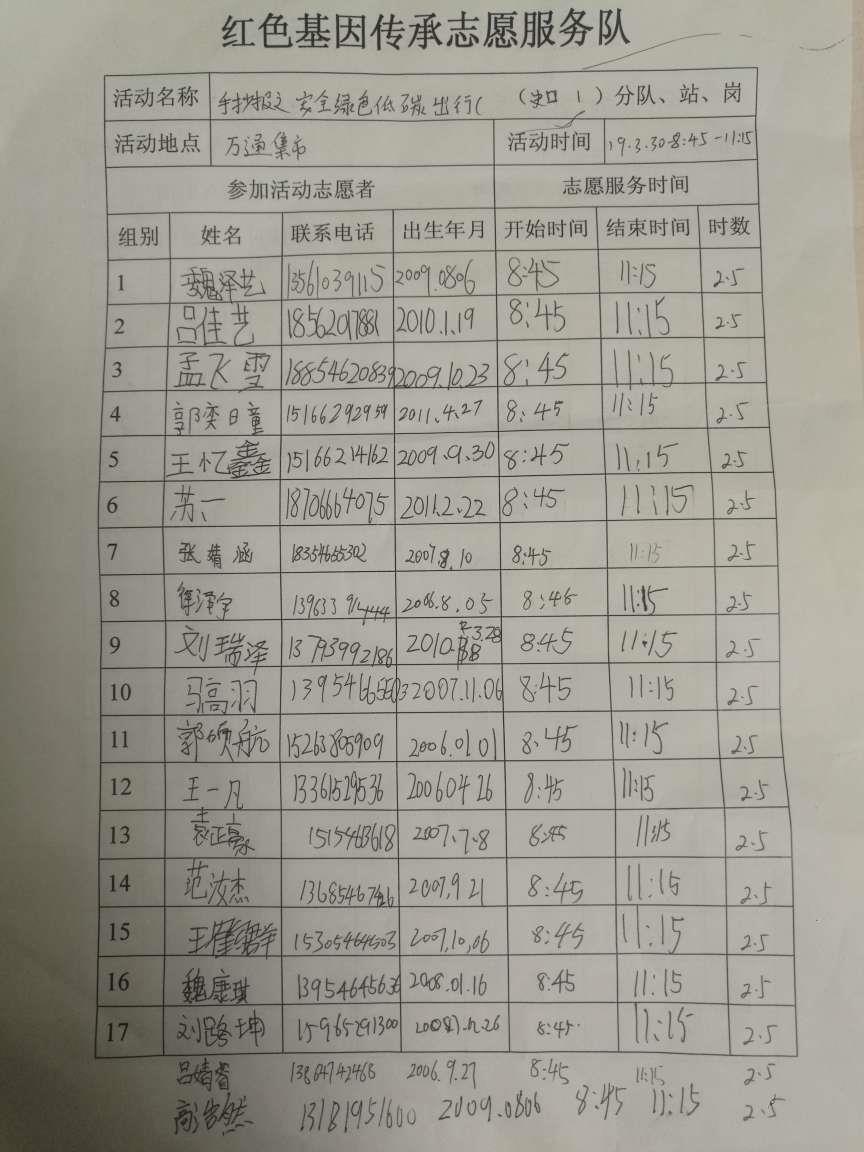 红色基因传承志愿服务队
活动名称 手抄报之安全绿色低碳出行( ( 1 )分队、站、岗
活动地点 万通集市 活动时间 19.3.30 8:45-11:15
参加活动志愿者 志愿服务时间
组别 姓名 联系电话 出生年月 开始时间 结束时间 时数
1 魏泽艺 13561039115 2009.0806 8:45 11:15 2.5
2 吕佳艺 18562017881 2010.1.19 8:45 11:15 2.5
3 孟飞雪 18854620839 2009.10.23 8:45 11:15 2.5
4 郭奕曈 15166292959 2011.4.27 8:45 11:15 2.5
5 王忆鑫 15166214162 2009.9.30 8:45 11:15 2.5
6 苏一 18706664075 2011.2.22 8:45 11:15 2.5
7 张婧涵 18354665302 2007.8.10 8:45 11:15 2.5
8 徐泽宇 2006.8.05 8:45 11:15 2.5
9 刘瑞泽 13793992186 2010. 8:45 11:15 2.5
10 马高羽 2007.11.06 8:45 11:15 2.5
11 郭硕航 15263805909 2006.01 01 8:45 11:15 2.5
12 王一凡 13361529536 2006 04 26 8:45 11:15 2.5
13 袁正豪 1515463618 2007.7.8 8:45 11:15 2.5
14 范汝杰 2007.9 21 8:45 11:15 2.5
15 王 群 2007,10,06 8:45 11:15 2.5
16 魏康琪 13954645636 2008.01.16 8:45 11:15 2.5
17 刘路坤 15965291300 8:45 11:15 2.5
吕婧睿 2006.9.27 8:45 11:15 2.5
高浩然 13181951600 2009.0806 8:45 11:15 2.5